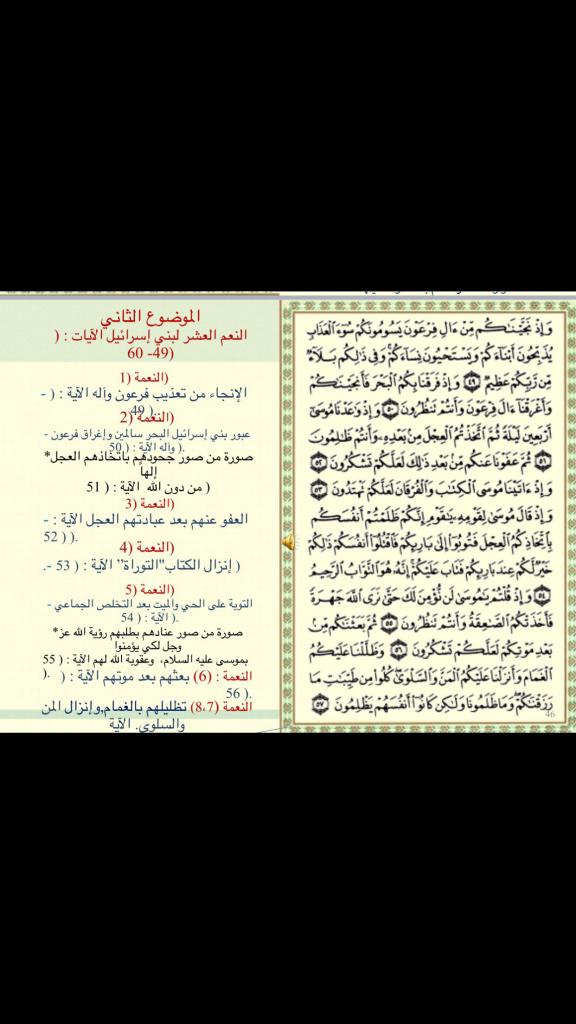 وَإِذْ نَجَّيْنَاكُم مِّنْ ءَالِ فِرْعَوْنَ يَسُومُونَكُمْ سُوٓءَ ٱلْعَذَابِ
يُذَبِّحُونَ أَبْنَآءَكُمْ وَيَسْتَحْيُونَ نِسَآءَكُمْ وَفِى ذَٰلِكُم بَلَآءٌ
مِّن رَّبِّكُمْ عَظِيمٌ ٤٩ وَإِذْ فَرَقْنَا بِكُمُ ٱلْبَحْرَ فَأَنجَيْنَٰكُمْ
وَأَغْرَقْنَآ ءَالَ فِرْعَوْنَ وَأَنتُمْ تَنظُرُونَ ٥٠ وَإِذْ وَٰعَدْنَا مُوسَىٰٓ
أَرْبَعِينَ لَيْلَةً ثُمَّ ٱتَّخَذْتُمُ ٱلْعِجْلَ مِنۢ بَعْدِهِۦ وَأَنتُمْ ظَٰلِمُونَ
٥١ ثُمَّ عَفَوْنَا عَنكُم مِّنۢ بَعْدِ ذَٰلِكَ لَعَلَّكُمْ تَشْكُرُونَ ٥٢
وَإِذْ ءَاتَيْنَا مُوسَى ٱلْكِتَٰبَ وَٱلْفُرْقَانَ لَعَلَّكُمْ تَهْتَدُونَ ٥٣
وَإِذْ قَالَ مُوسَىٰ لِقَوْمِهِۦ يَٰقَوْمِ إِنَّكُمْ ظَلَمْتُمْ أَنفُسَكُم
بِٱتِّخَاذِكُمُ ٱلْعِجْلَ فَتُوبُوٓا۟ إِلَىٰ بَارِئِكُمْ فَٱقْتُلُوٓا۟ أَنفُسَكُمْ ذَٰلِكُمْ
خَيْرٌ لَّكُمْ عِندَ بَارِئِكُمْ فَتَابَ عَلَيْكُمْ إِنَّهُۥ هُوَ ٱلتَّوَّابُ ٱلرَّحِيمُ
٥٤ وَإِذْ قُلْتُمْ يَٰمُوسَىٰ لَن نُّؤْمِنَ لَكَ حَتَّىٰ نَرَى ٱللَّهَ جَهْرَةً
فَأَخَذَتْكُمُ ٱلصَّٰعِقَةُ وَأَنتُمْ تَنظُرُونَ ٥٥ ثُمَّ بَعَثْنَٰكُم مِّنۢ
بَعْدِ مَوْتِكُمْ لَعَلَّكُمْ تَشْكُرُونَ ٥٦ وَظَلَّلْنَا عَلَيْكُمُ
ٱلْغَمَامَ وَأَنزَلْنَا عَلَيْكُمُ ٱلْمَنَّ وَٱلسَّلْوَىٰ كُلُوا۟ مِن طَيِّبَٰتِ مَا
رَزَقْنَٰكُمْ وَمَا ظَلَمُونَا وَلَٰكِن كَانُوٓا۟ أَنفُسَهُمْ يَظْلِمُونَ ٥٧
46
الموضوع الثاني
النعم العشر لبني إسرائيل الآيات : (
49- 60)
النعمة (1)
الإنجاء من تعذيب فرعون وآله الآية : ( -
49 ).
النعمة (2)
عبور بني إسرائيل البحر سالمين وإغراق فرعون -
وآله الآية : ( 50 ).
*صورة من صور جحودهم باتخاذهم العجل
إلها
من دون الله الآية : ( 51 )
النعمة (3)
العفو عنهم بعد عبادتهم العجل الآية : -
( 52 ).
النعمة (4)
إنزال الكتاب"التوراة" الآية : ( 53 -. )
النعمة (5)
التوبة على الحي والميت بعد التخلص الجماعي -
الآية : ( 54 ).
*صورة من صور عنادهم بطلبهم رؤية الله عز
وجل لكي يؤمنوا
بموسى عليه السلام، وعقوبة الله لهم الآية : ( 55
).
النعمة : (6) بعثهم بعد موتهم الآية : (
56 ).
النعمة (8،7) تظليلهم بالغمام,وإنزال المن
والسلوى. الآية